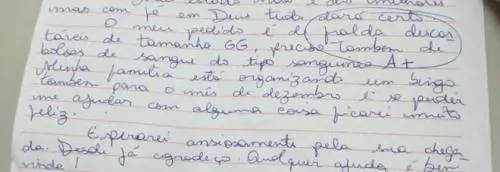 mas com fé em Deus tudo dará certo.
O meu pedido é de fralda descar
táveis de tamanho GG, preciso também de
bolsas de sangue do tipo sanguíneo A+
Minha família está organizando um bingo
também para o mês de dezembro e se puder
me ajudar com alguma coisa ficarei muito
feliz.
Esperarei ansiosamente pela sua chega-
da. Desde já agradeço. Qualquer ajuda é bem
vinda!